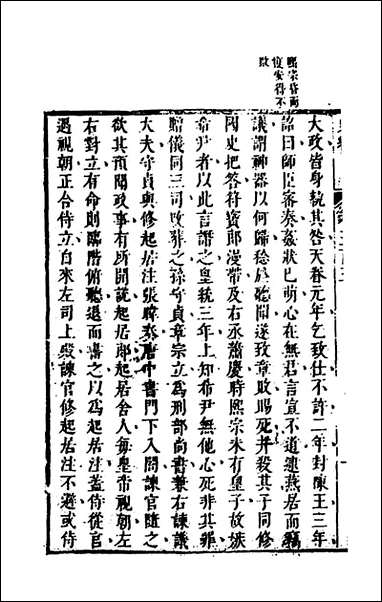 熙宗昏而
愎安得不
敗
大政皆身執其咎天眷元年乞致仕不許二年封陳王三年
詔曰師臣密奏姦狀已萌心在無君言宣不道逮燕居而竊
議謂神器以何歸稔於聽聞遂致章敗賜死并殺其子同修
國史把答符寶郎漫帶及右丞蕭慶時熙宗未有皇子故嫉
希尹者以此言譖之皇統三年上知希尹無他心死非其罪
贈儀同三司改葬之孫守貞章宗立為刑部尚書兼右諫議
大夫守貞與修起居注張暐奏唐中書門下入閣諫官隨之
欲其預聞政事有所開說起居郎起居舍人每皇帝視朝左
右對立有命則臨階俯聽退而書之以為起居注蓋侍從官
遇視朝正合侍立自來左司上殿諫官修起居注不避或侍